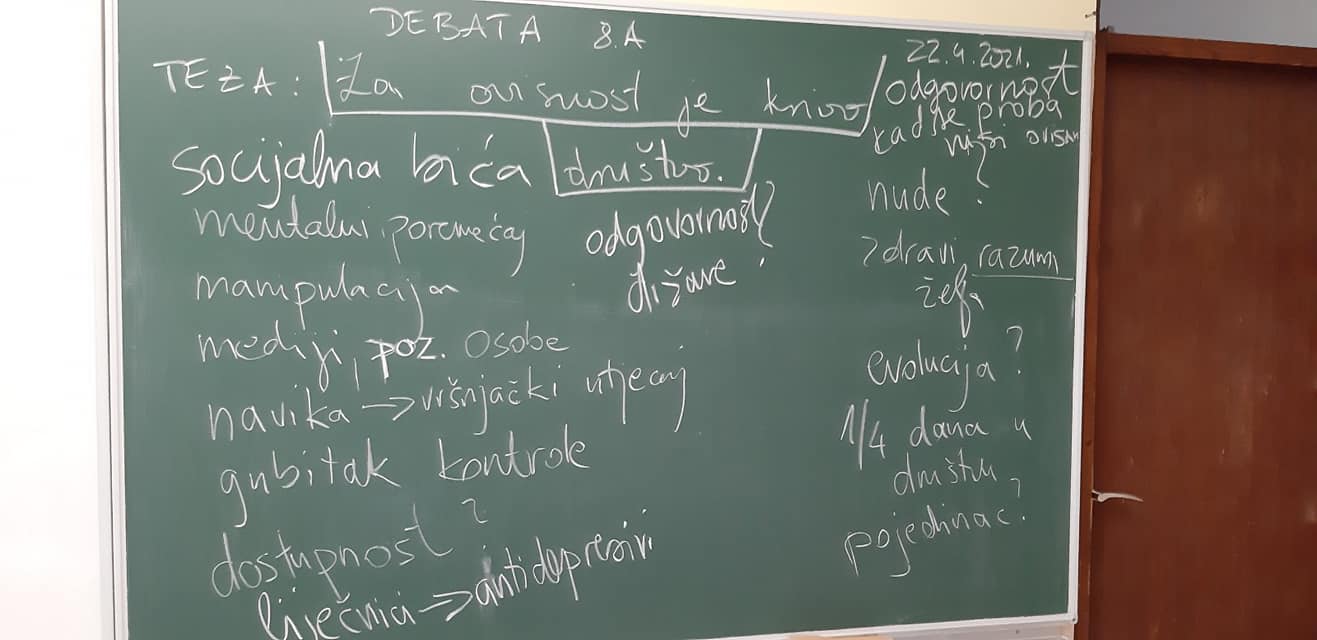 DEBATA 8.A
22.4.2021.
TEZA: Za ovisnost je krivo
društvo.
socijalna bića
mentalni poremećaj
manipulacija
mediji, poz. osobe
navika → vršnjački utjecaj
gubitak kontrole
dostupnost?
liječnici → antidepresivi
odgovornost
države?
odgovornost
kad se proba
nisi ovisan
nude?
zdravi razum
želja
evolucija?
1/4 dana u
društvu
pojedinac?